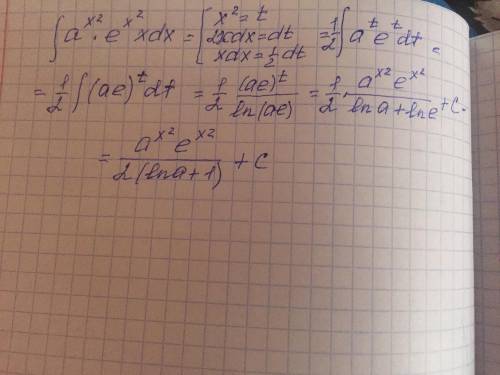 ∫ a^{x²} · e^{x²} x dx = { x² = t = 1/2 ∫ a^t e^t dt =
2x dx = dt
x dx = 1/2 dt
= 1/2 ∫ (ae)^t dt = 1/2 (ae)^t / ln(ae) = 1/2 · a^{x²} e^{x²} / ln a + ln e + C.
= a^{x²} e^{x²} / 2(ln a + 1) + C